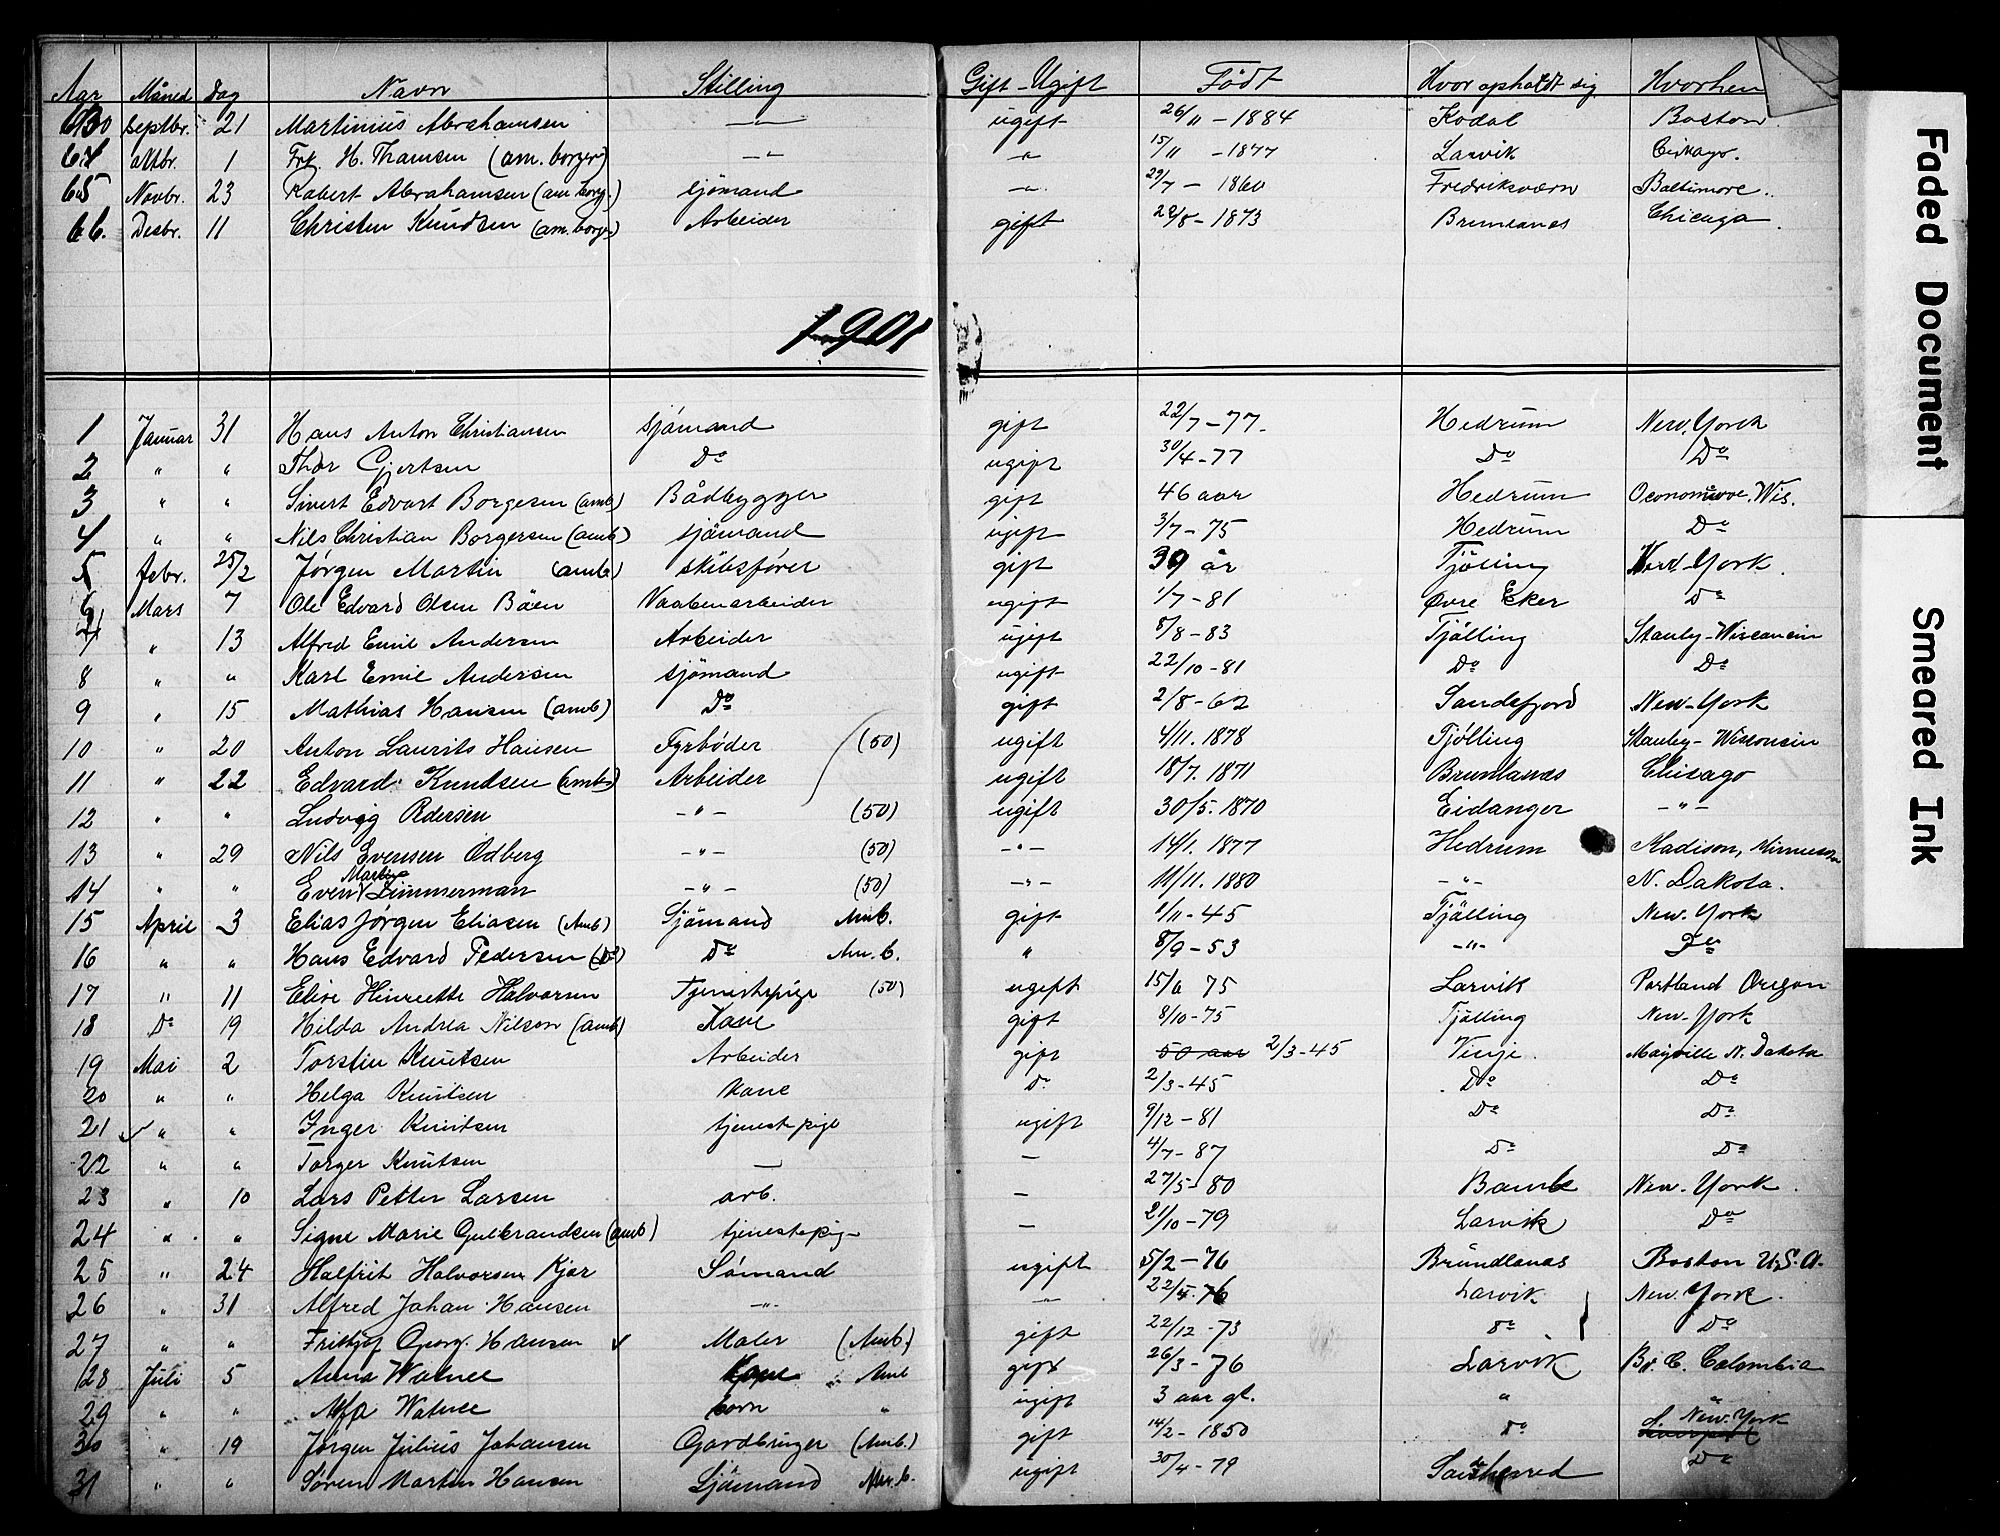 Aar Måned Dag Navn Stilling Gift-Ugift Födt Hvor opholdt sig Hvorhen
Septbr. 21 Martinius Abrahamsen — ugift 26/11 - 1884 Kodal Boston
64 oktbr. 1 Frk H. Thamsen (am. borger) -"- -"- 15/11 - 1877 Larvik Cikago.
65 Novbr. 23 Robert Abrahamsen (am borg.) sjömand -"- 29/7 - 1860 Fredriksværn Baltimore.
66. Desbr. 11 Christen Knudsen (am. borger) Arbeider gift 28/8 - 1873 Brunlanes Chicago
1901
1 Januar 31 Hans Anton Christiansen sjömand gift 22/7 - 77. Hedrum New. York
2 " " Thor Gjertsen Do ugift 30/4 - 77 Do Do
3 " " Sivert Edvart Borgesen (amb) Bådbygger gift 46 aar Hedrum Oconomovoc. Wis.
4 " " Nils Christian Borgersen (amb) sjömand ugift 3/7 - 75 Hedrum Do
5 Febr. 25/2 Jørgen Martin (amb) skibsfører gift 39 år Tjölling New-York.
6 Mars 7 Ole Edvard Olsen Båen Vaabenarbeider ugift 1/7 - 81 Øvre Eker Do
7 " 13 Alfred Emil Andersen Arbeider ugift 8/8 - 83 Tjölling Stanley-Wisconsin
8 " " Karl Emil Andersen sjömand ugift 22/10 - 81 Do Do
9 " 15 Mathias Hansen (amb) Do gift 2/8 - 62 Sandefjord New-York
10 " 20 Anton Laurits Hansen Fyrbøder (50) ugift 4/11. 1878 Tjölling Stanley- Wisconsin
11 " 22 Edvard Knudsen (amb) Arbeider ugift 18/7. 1871 Brunlanæs Chicago
12 " " Ludvig Pedersen -"- (50) ugift 30/5. 1870 Eidanger -"-
13 " 29 Nils Evensen Odberg -"- (50) -"- 14/1. 1877 Hedrum Madison, Minnesota
14 " " Even Martin Zimmerman -"- (50) -"- 11/11. 1880 -"- N. Dakota.
15 April 3 Elias Jørgen Eliasen (Amb) Sjömand Amb. gift 1/11 - 45 Tjölling New-York
16 " " Hans Edvard Pedersen (Do) Do Am. b. " 8/9 - 53 -"- Do
17 " 11 Elise Henriette Halvorsen Tjenestepige (50) ugift 15/6 75 Larvik Portland Oregon
18 Do 19 Hilda Andrea Nilson (amb) Kone gift 8/10 - 75 Tjölling New-York
19 Mai 2 Torstin Knutsen Arbeider gift 50 aar 2/3 - 45 Vinje. Mayville N. Dakota
20 " " Helga Knutsen kone Do 2/3 - 45 Do Do
21 " " Inger Knutsen tjenestepige ugift 9/12 - 81 Do Do
22 " " Torger Knutsen — — 4/7 - 87 Do Do
23 " 10 Lars Petter Larsen arb. — 27/5 - 80 Bamle New-York.
24 " " Signe Marie Gulbrandsen (amb) tjenestepige — 21/10 - 79 Larvik Do
25 " 24 Halfrit Halvorsen Kjær Sömand ugift 5/2 - 76 Brundlanæs Boston U.S.A.
26 " 31 Alfred Johan Hansen -"- -"- 22/5 - 76 Larvik New-York.
27 " " Frithjof Georg. Hansen Maler (Amb.) gift 22/12 - 73 Do Do
28 Juli 5 Anna Watnee Kone Amb gift 26/3 - 76 Larvik Br. C. Colombia
29 " " Watnee barn " ugift 3 aar gl. " "
30 " 19 Jørgen Julius Johansen Gardbruger (Amb.) gift 14/2 - 1850 Do New-York
31 " " Søren Martin Hansen Sjömand Am.b. ugift 30/4 - 79 Sandeherred Do
Faded Document
Smeared Ink